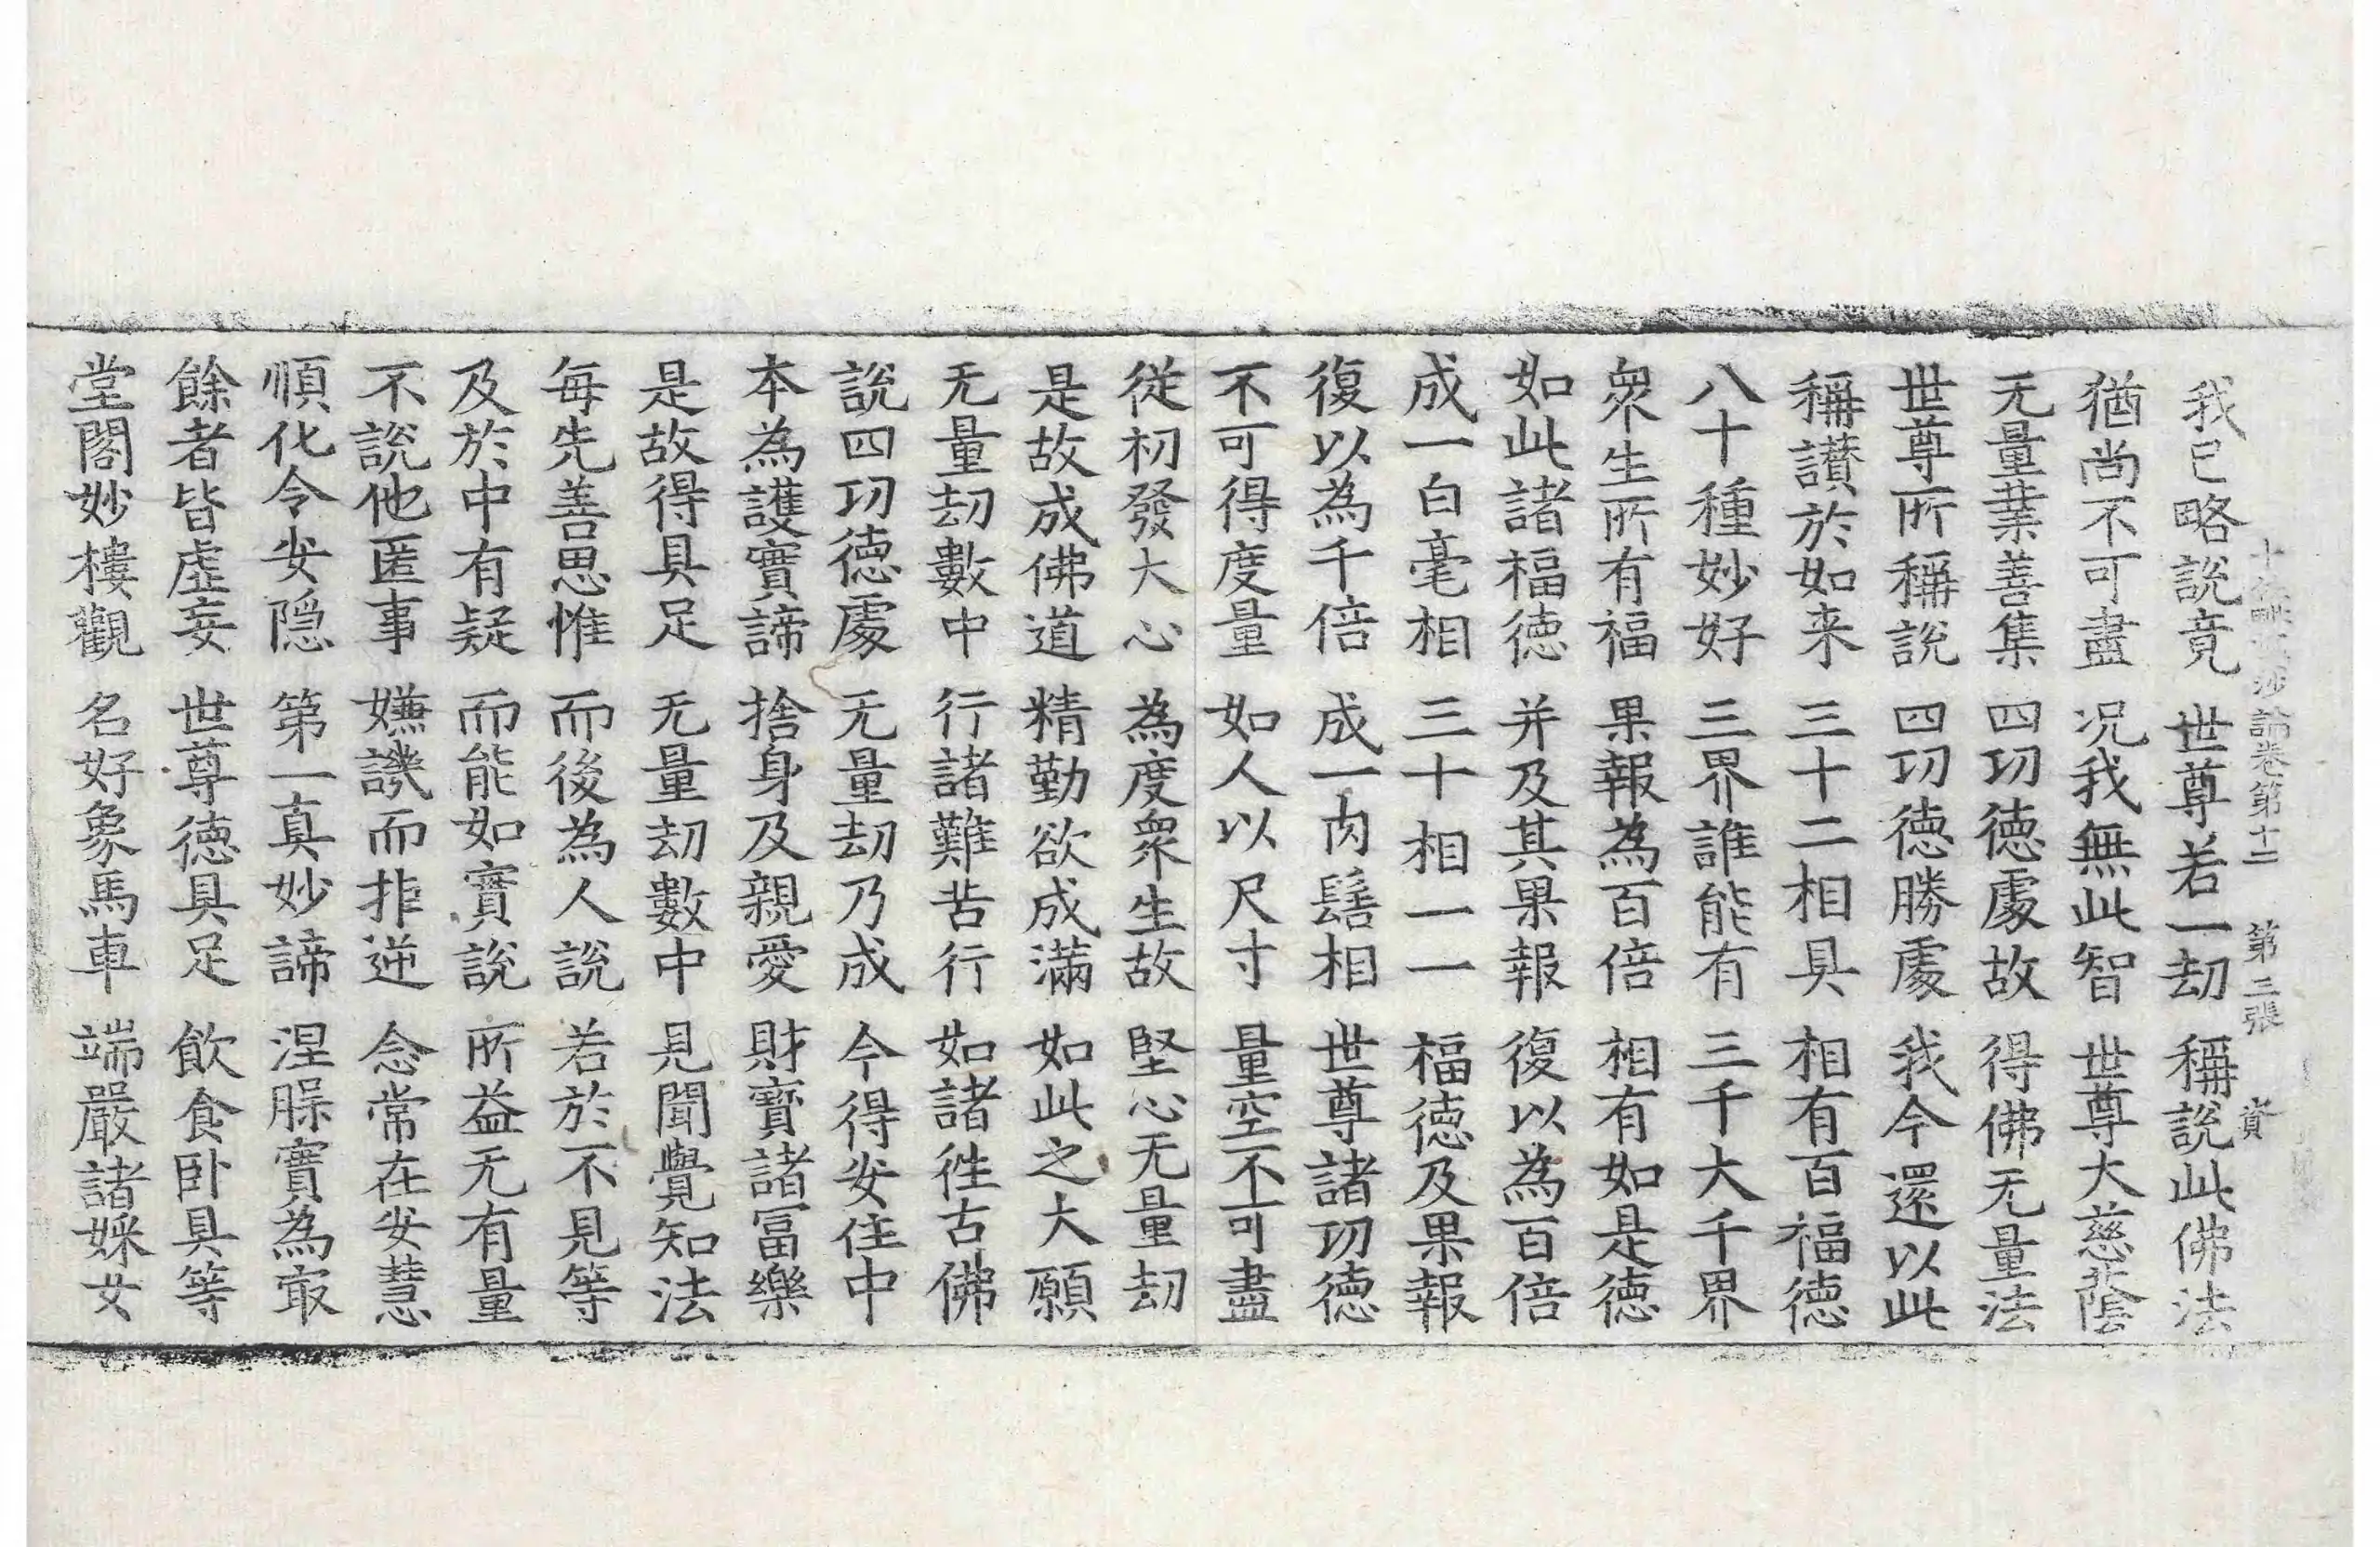 我已略說竟 世尊若一劫 稱說此佛法
猶尚不可盡 况我無此智 世尊大慈蔭
无量業善集 四功德處故 得佛无量法
世尊所稱說 四功德勝處 我今還以此
稱讃於如来 三十二相具 相有百福德
八十種妙好 三界誰能有 三千大千界
衆生所有福 果報為百倍 相有如是德
如此諸福德 并及其果報 復以為百倍
成一白毫相 三十相一一 福德及果報
復以為千倍 成一肉髻相 世尊諸功德
不可得度量 如人以尺寸 量空不可盡
從初發大心 為度衆生故 堅心无量劫
是故成佛道 精勤欲成滿 如此之大願
无量劫數中 行諸難苦行 如諸徃古佛
說四功德處 无量劫乃成 今得安住中
本為護實諦 捨身及親愛 財寶諸冨樂
是故得具足 无量劫數中 見聞覺知法
每先善思惟 而後為人說 若於不見等
及於中有疑 而能如實說 所益无有量
不說他匿事 嫌譏而拒逆 念常在安慧
順化令安隐 第一真妙諦 涅槃實為㝡
餘者皆虛妄 世尊德具足 飲食卧具等
堂閣妙樓觀 名好象馬車 端嚴諸婇女
論卷第十二 第三張 資